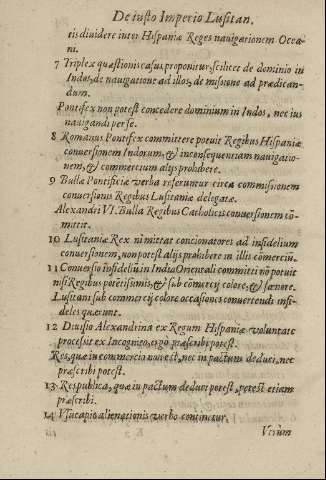 De iusto Imperio Lusitan.
tis diuidere inter Hispaniæ Reges nauigationem Ocea-
ni.
7 Triplex quæstionis casus proponitur, scilicet de dominio in
Indos, de nauigatione ad illos, de missione ad prædican-
dum.
Pontifex non potest concedere dominium in Indos, nec ius
nauigandi per se.
8 Romanus Pontifex committere potuit Regibus Hispaniæ
conuersionem Indorum, & inconsequentiam nauigatio-
nem, & commercium alijs prohibere.
9 Bulla Pontificiæ verba referuntur circa commissionem
conuersionis Regibus Lusitaniæ delegatæ.
Alexandri VI. Bulla Regibus Catholicis conuersionem cõ-
mittit.
10 Lusitaniæ Rex ni mittat concionatores ad infidelium
conuersionem, non potest alijs prohibere in illis cõmerciũ.
11 Conuersio infideliũ in India Orientali committi nõ potuit
nisi Regibus potẽtissimis, & sub cõmercij colore, & fœnore.
Lusitani sub commercij colore occasiones conuertendi infi-
deles quærunt.
12 Diuisio Alexandrina ex Regum Hispaniæ voluntate
processit ex Incognito, ergo præscribi potest.
Res, quæ in commercio non est, nec in pactum deduci, nec
præscribi potest.
13 Respublica, quæ in pactum deduci potest, potest etiam
præscribi.
14 Vsucapio alienationis verbo continetur.
Verùm